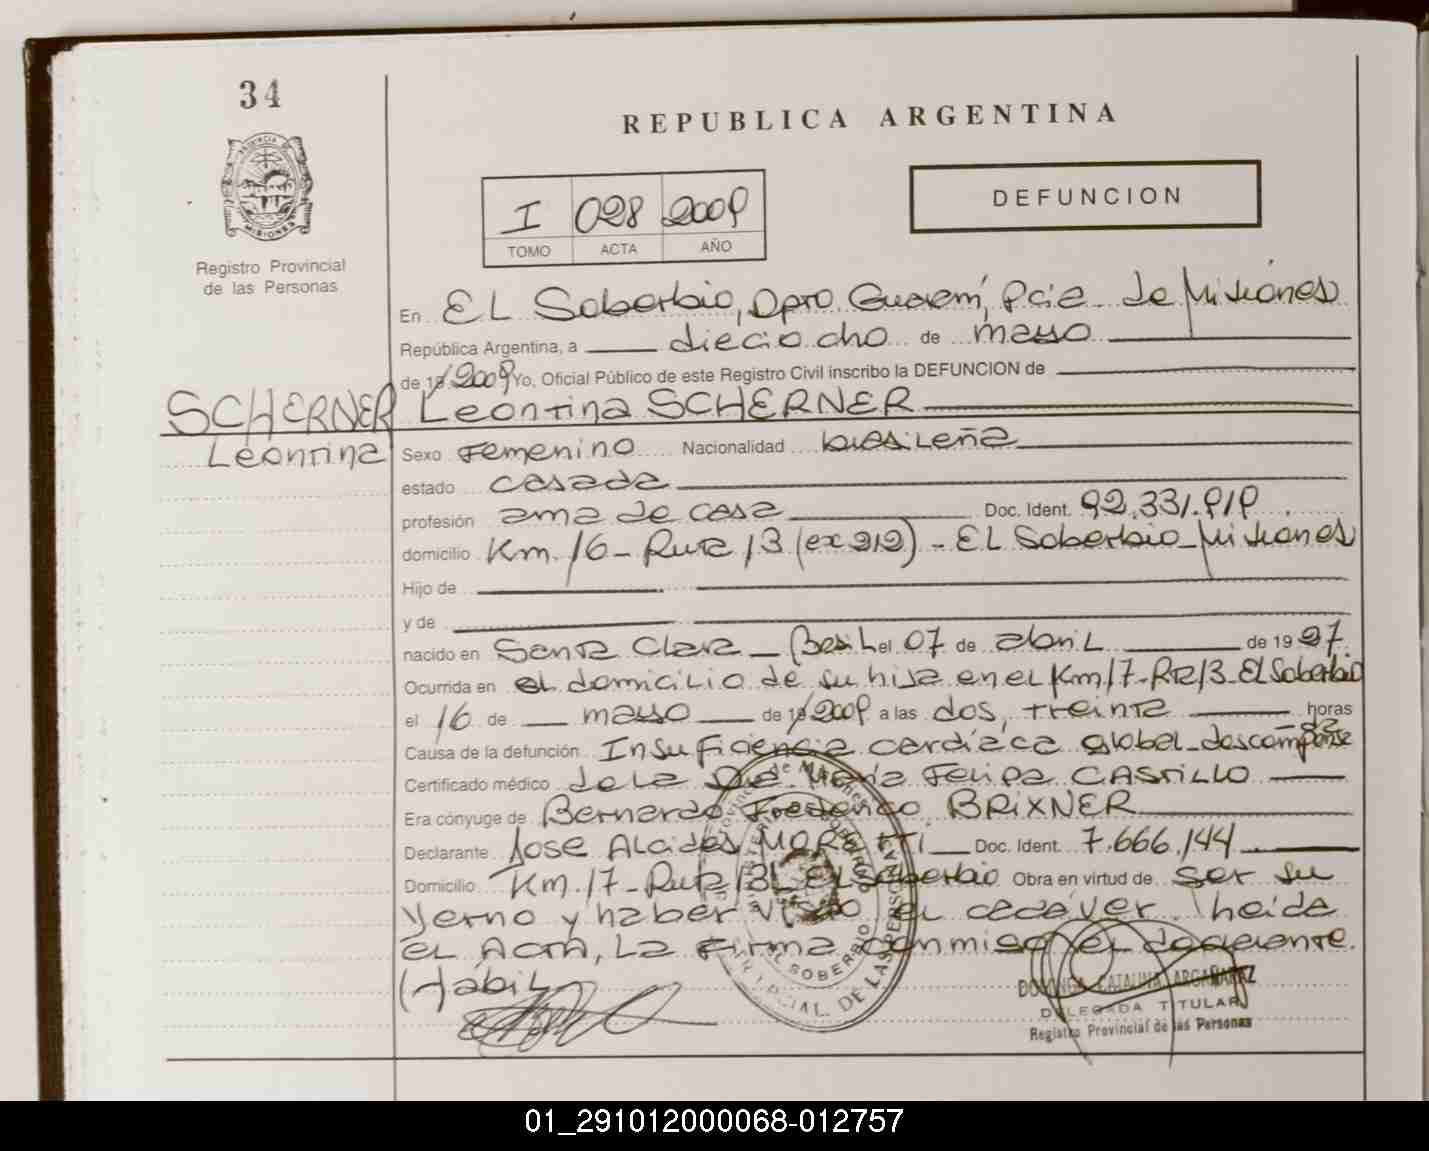 34
REPUBLICA ARGENTINA
PROVINCIA DE
MISIONES
Registro Provincial
de las Personas
DEFUNCION
I 028 2009
TOMO ACTA AÑO
En EL Soberbio, Dpto. Guaraní, Pcia. de Misiones
República Argentina, a dieciocho de mayo
de 19/2009 Yo, Oficial Público de este Registro Civil inscribo la DEFUNCION de
SCHERNER Leontina SCHERNER
Leontina Sexo Femenino Nacionalidad brasileña
estado casada
profesión ama de casa Doc. Ident. 92.331.919
domicilio Km. 16 - Ruta 13 (ex 212) - EL Soberbio - Misiones
Hijo de
y de
nacido en Santa Clara - Brasil el 07 de abril de 1927
Ocurrida en el domicilio de su hija en el Km 17 - R 13 - EL Soberbio
el 16 de mayo de 19/2009 a las dos, treinta horas
Causa de la defunción Insuficiencia cardíaca global descompensada
Certificado médico de la Dra. María Felipa CASTILLO
Era cónyuge de Bernardo Frederico BRIXNER
Declarante José Alcides MORETTI Doc. Ident. 7.666.144
Domicilio Km. 17 - Ruta 13 EL Soberbio Obra en virtud de ser su
yerno y haber visto el cadáver. Leída
el Acta, la firma conmigo el declarante.
(Hábil)
EL SOBERBIO
DE LAS PERSONAS
CATALINA ARGAÑARAZ
DELEGADA TITULAR
Registro Provincial de las Personas
01_291012000068-012757